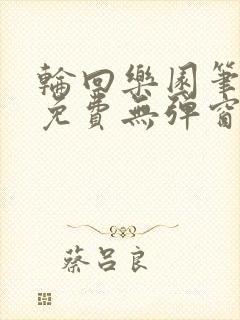 輪回樂園筆
免費無彈窗
蔡呂良